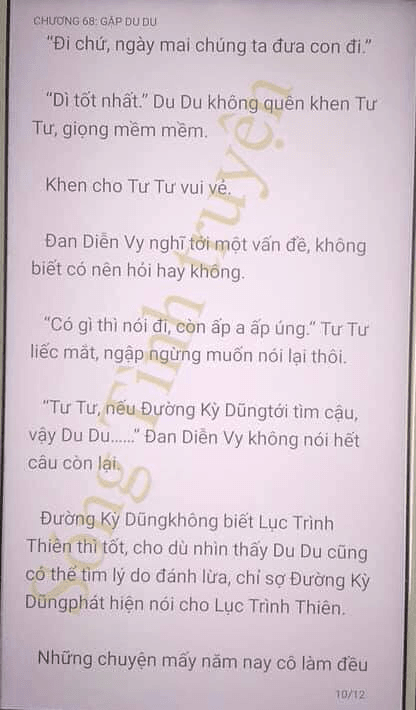 CHƯƠNG 68: GẶP DU DU
“Đi chứ, ngày mai chúng ta đưa con đi.”
“Dì tốt nhất.” Du Du không quên khen Tư
Tư, giọng mềm mềm.
Khen cho Tư Tư vui vẻ.
Đan Diễn Vy nghĩ tới một vấn đề, không
biết có nên hỏi hay không.
“Có gì thì nói đi, còn ấp a ấp úng.” Tư Tư
liếc mắt, ngập ngừng muốn nói lại thôi.
“Tư Tư, nếu Đường Kỳ Dũngtới tìm cậu,
vậy Du Du......” Đan Diễn Vy không nói hết
câu còn lại.
Đường Kỳ Dũngkhông biết Lục Trình
Thiên thì tốt, cho dù nhìn thấy Du Du cũng
có thể tìm lý do đánh lừa, chỉ sợ Đường Kỳ
Dũngphát hiện nói cho Lục Trình Thiên.
Những chuyện mấy năm nay cô làm đều
10/12
Sóng Tình truyện